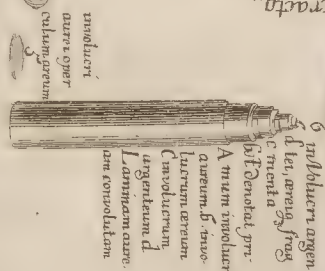 6 involucri argen
d tei, ærei g frag
c menta
b f denotat pri-
A mum involucr
aureum. b. invo-
lucrum æreum
C involucrum
argenteum d
Laminam aure.
am convolutam
involucri
aurei oper
culum æreum
g